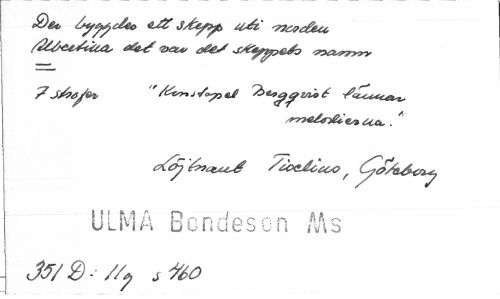 Der byggdes ett skepp uti norden
Albertina det var det skeppets namn
7 strofer "Konstapel Bergqvist lämnar
melodierna."
Löjtnant Tiselius, Göteborg
ULMA Bondeson Ms
351 D: 11q s 460